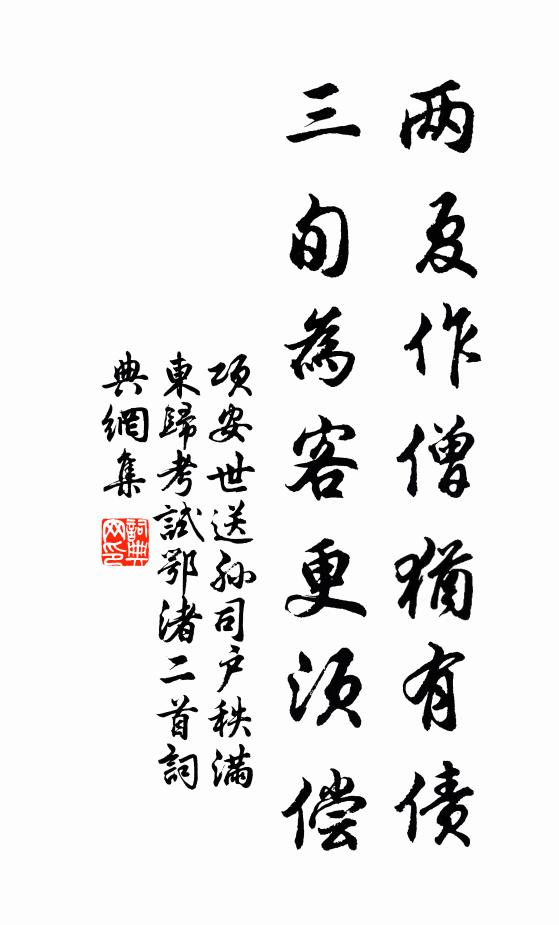 两夏作僧犹有债
三旬為客更须偿
项安世送孙司户秩满
東歸考試鄂渚二首詞
典網集
詞典网印